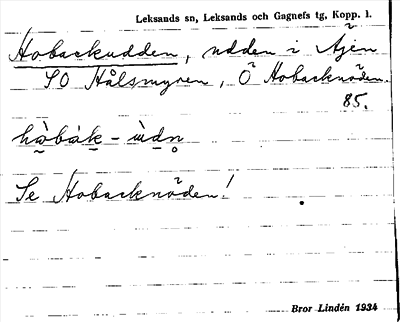 Leksands sn, Leksands och Gagnefs tg, Kopp. l.
Hobackudden, udden i Åjen
SO Hålsmyren, Ö Hobacknäden.
85.
Se Hobacknäden!
Bror Lindén 1934